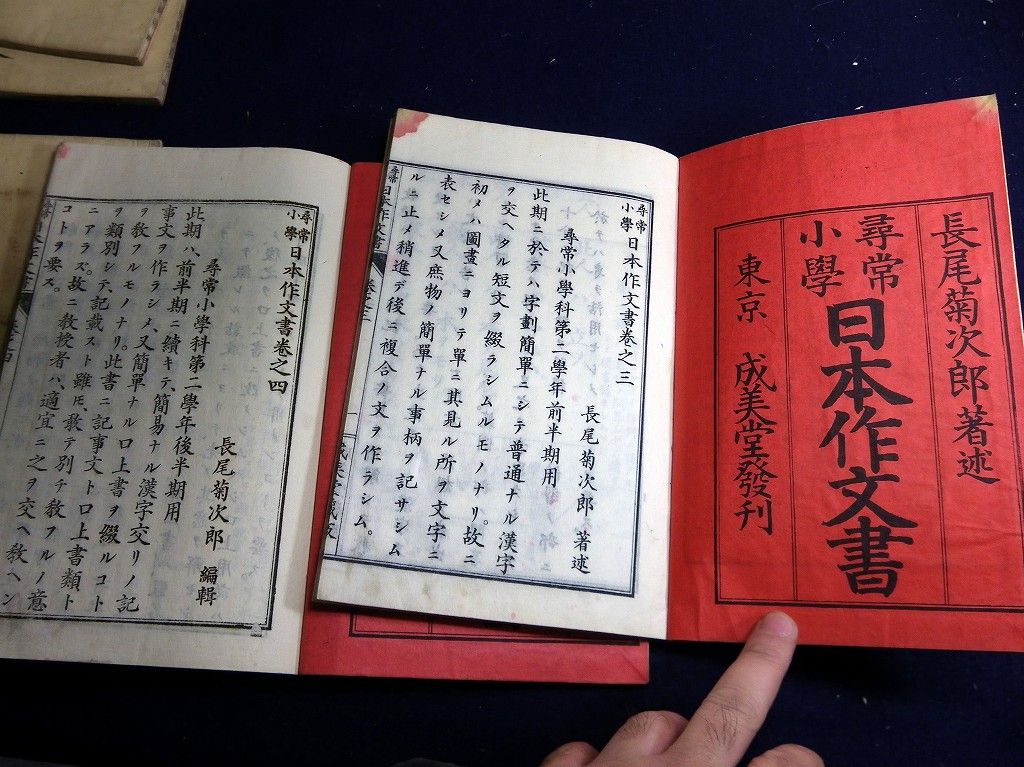 長尾菊次郎著述
尋常
小學
日本作文書
東京 成美堂發刊
尋常
小學
日本作文書卷之三
長尾菊次郎 著述
尋常小學科第二學年前半期用
此期ニ於テハ字劃簡單ニシテ普通ナル漢字
ヲ交ヘタル短文ヲ綴ラシムルモノナリ。故ニ
初メハ圖畫ニヨリテ單ニ其見ル所ヲ文字ニ
表セシメ又庶物ノ簡單ナル事柄ヲ記サシム
ルニ止メ稍進デ後ニ複合ノ文ヲ作ラシム。
尋常
日本作文書
尋常
小學
日本作文書卷之四
長尾菊次郎 編輯
尋常小學科第二學年後半期用
此期ハ、前半期ニ續キテ、簡易ナル漢字交リノ記
事文ヲ作ラシメ、又簡單ナル口上書ヲ綴ルコト
ヲ教フルモノナリ。此書ニ記事文ト口上書類ト
ヲ類別シテ、記載スト雖モ、敢テ別チ教フルノ意
ニアラズ。故ニ教授者ハ、適宜ニ之ヲ交ヘ教ヘン
コトヲ要ス。